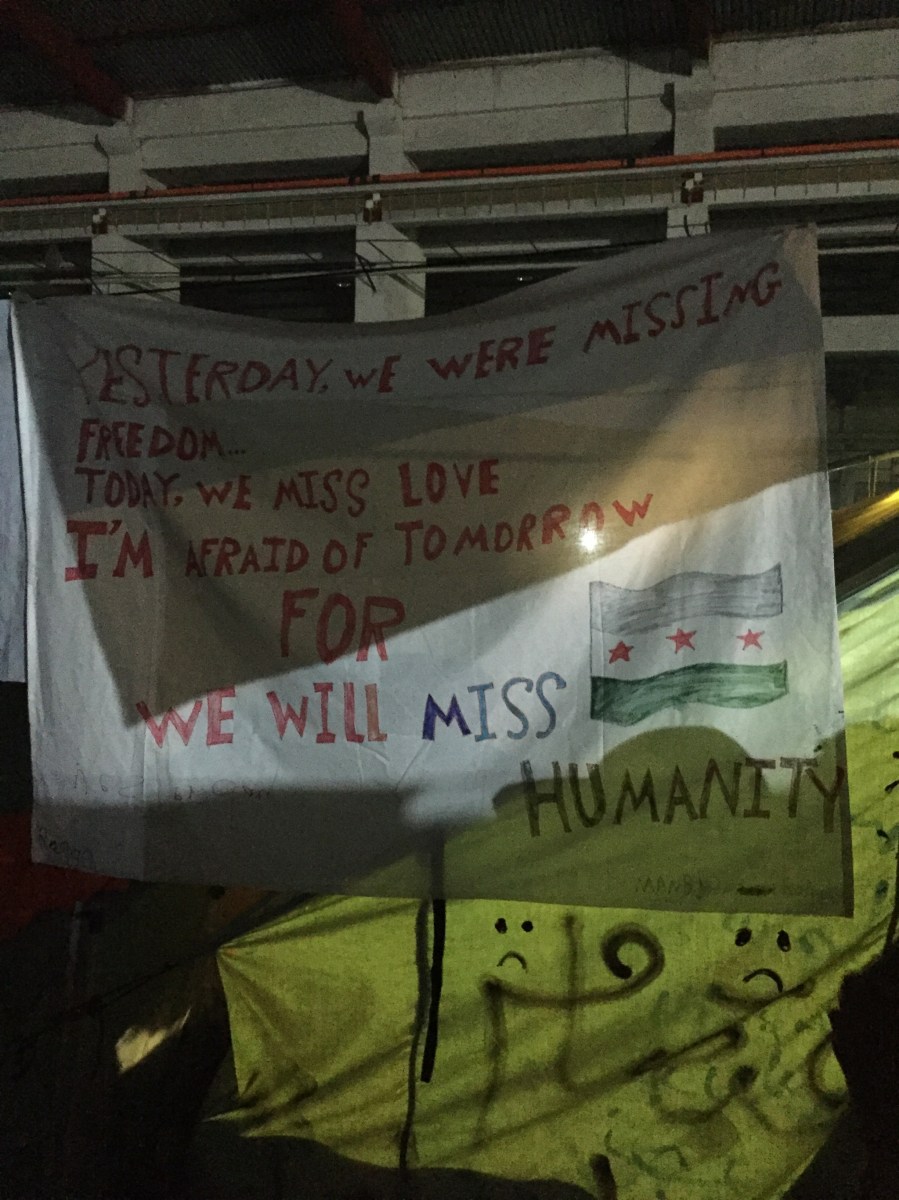 YESTERDAY, WE WERE MISSING
FREEDOM...
TODAY, WE MISS LOVE
I'M AFRAID OF TOMORROW
FOR
WE WILL MISS
HUMANITY